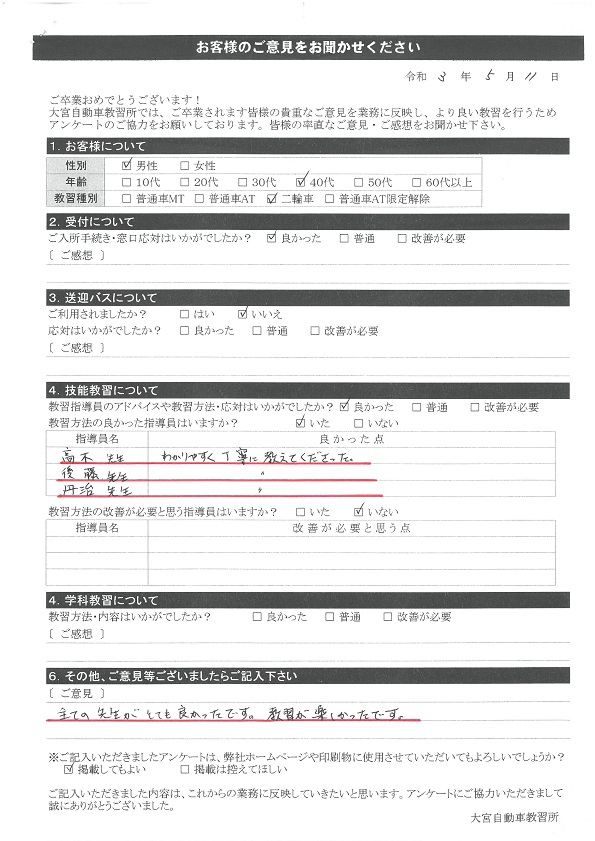 お客様のご意見をお聞かせください
令和 3 年 5 月 11 日
ご卒業おめでとうございます！
大宮自動車教習所では、ご卒業されます皆様の貴重なご意見を業務に反映し、より良い教習を行うため
アンケートのご協力をお願いしております。皆様の率直なご意見・ご感想をお聞かせ下さい。
1. お客様について
性別 ☑ 男性 □ 女性
年齢 □ 10代 □ 20代 □ 30代 ☑ 40代 □ 50代 □ 60代以上
教習種別 □ 普通車MT □ 普通車AT ☑ 二輪車 □ 普通車AT限定解除
2. 受付について
ご入所手続き・窓口応対はいかがでしたか？ ☑ 良かった □ 普通 □ 改善が必要
〔 ご感想 〕
3. 送迎バスについて
ご利用されましたか？ □ はい ☑ いいえ
応対はいかがでしたか？ □ 良かった □ 普通 □ 改善が必要
〔 ご感想 〕
4. 技能教習について
教習指導員のアドバイスや教習方法・応対はいかがでしたか？ ☑ 良かった □ 普通 □ 改善が必要
教習方法の良かった指導員はいますか？ ☑ いた □ いない
指導員名 良かった点
高木 先生 わかりやすく丁寧に教えてくださった。
後藤 先生 〃
丹治 先生 〃
教習方法の改善が必要と思う指導員はいますか？ □ いた ☑ いない
指導員名 改善が必要と思う点
4. 学科教習について
教習方法・内容はいかがでしたか？ □ 良かった □ 普通 □ 改善が必要
〔 ご感想 〕
6. その他、ご意見等ございましたらご記入下さい
〔 ご意見 〕
全ての先生がとても良かったです。教習が楽しかったです。
※ご記入いただきましたアンケートは、弊社ホームページや印刷物に使用させていただいてもよろしいでしょうか？
☑ 掲載してもよい □ 掲載は控えてほしい
ご記入いただきました内容は、これからの業務に反映していきたいと思います。アンケートにご協力いただきまして
誠にありがとうございました。
大宮自動車教習所